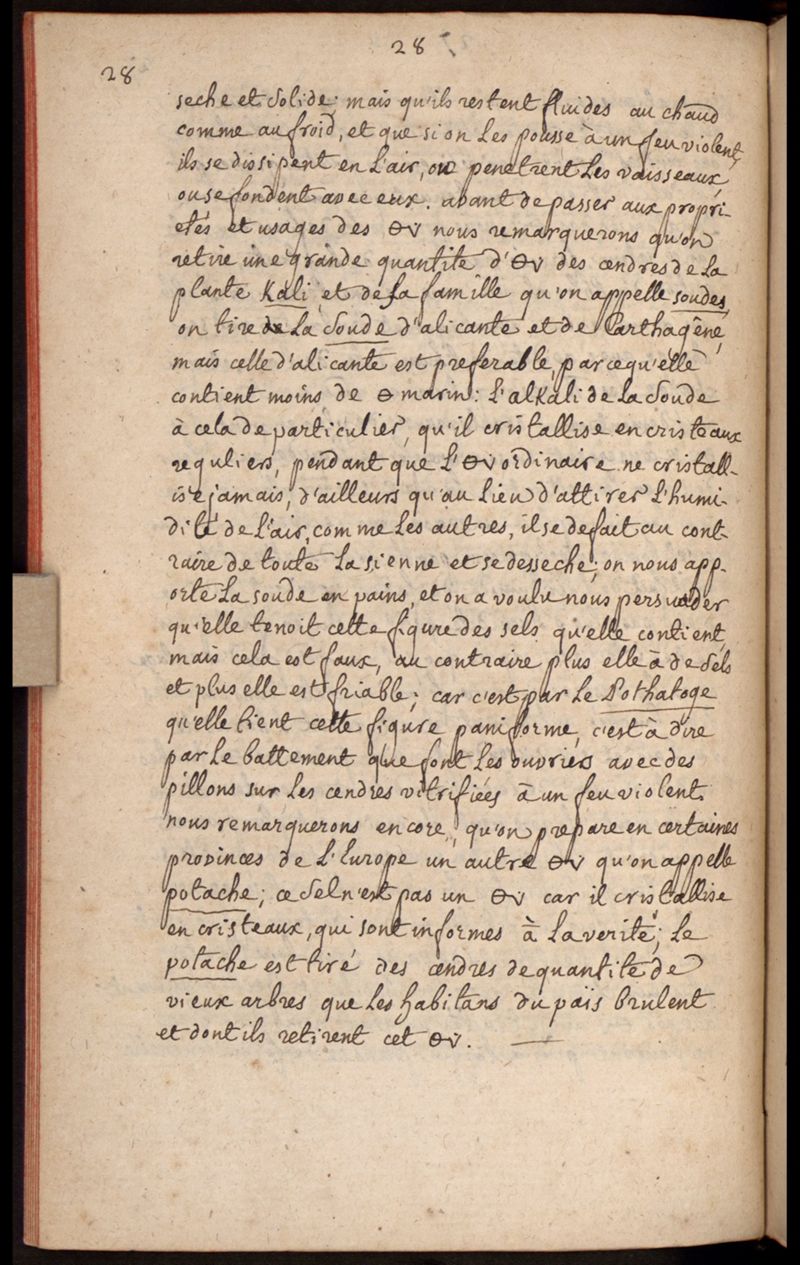 28
28
seche et solide; mais qu'ils restent fluides au chaud
comme au froid, et que si on les pousse à un feu violent,
ils se dissipent en l'air, ou penetrent les vaisseaux
ou se fondent avec eux. avant de passer aux propri-
etés et usages des 🜔v nous remarquerons qu'on
retire une grande quantité d'🜔v des cendres de la
plante Kali, et de sa famille qu'on appelle soudes,
on tire de la soude d'alicante et de Carthagêne,
mais celle d'alicante est preferable, parcequ'elle
contient moins de 🜔 marin: l'alkali de la soude
à cela de particulier, qu'il cristallise en cristeaux
reguliers, pendant que l'🜔v ordinaire ne cristall-
ise jamais; d'ailleurs qu'au lieu d'attirer l'humi-
dité de l'air, comme les autres, il se defait au cont-
raire de toute la sienne et se desseche; on nous app-
orte la soude en pains, et on a voulu nous persuader
qu'elle tenoit cette figure des sels qu'elle contient,
mais cela est faux, au contraire plus elle à de sels
et plus elle est friable; car c'est par le Pothatoge
qu'elle tient cette figure paniforme, c'est à dire
par le battement que font les ouvriers avec des
pillons sur les cendres vitrifiées à un feu violent.
nous remarquerons encore, qu'on prepare en certaines
provinces de l'Europe un autre 🜔v qu'on appelle
potache; ce sel n'est pas un 🜔v car il cristallise
en cristeaux, qui sont informes à la verité; le
potache est tiré des cendres de quantité de
vieux arbres que les habitans du païs brulent
et dont ils retirent cet 🜔v.